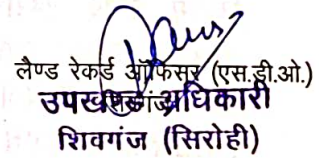 लैण्ड रेकर्ड ऑफिसर (एस.डी.ओ.)
उपखण्ड अधिकारी
शिवगंज (सिरोही)